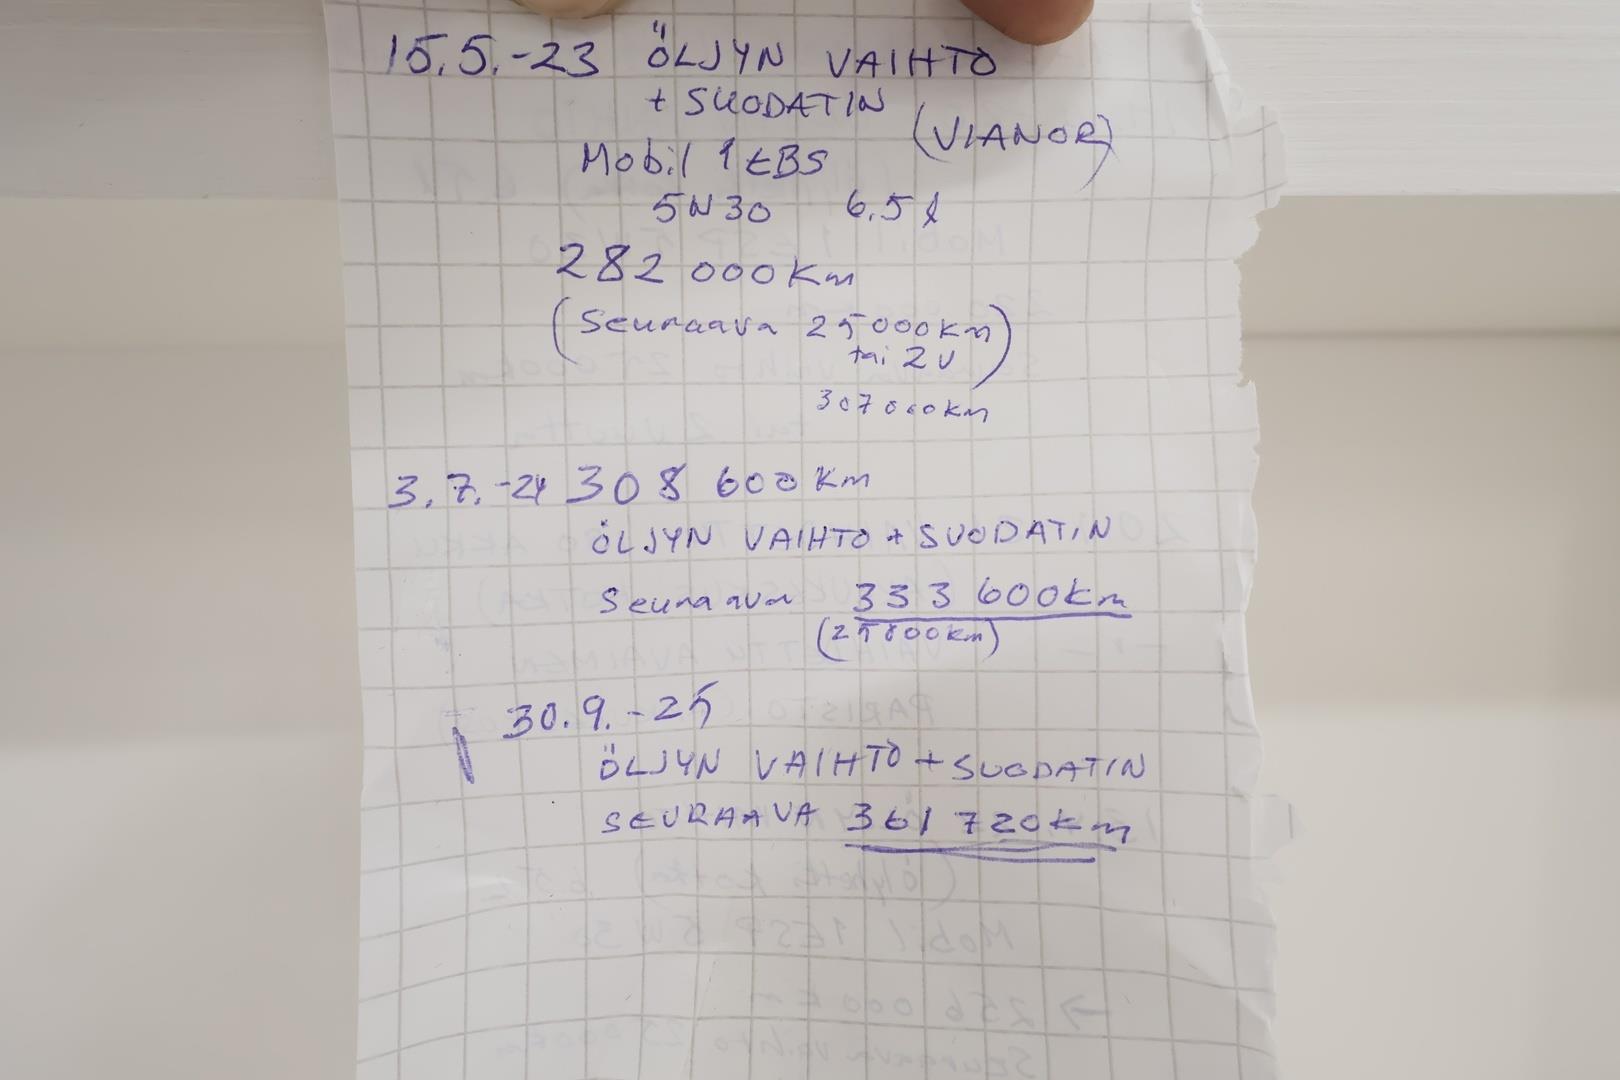 15.5.-23 ÖLJYN VAIHTO
+ SUODATIN
(VIANOR)
Mobil 1 EBS
5W30 6.5 l
282 000 km
(Seuraava 25 000 km
tai 2 v)
307 000 km
3.7.-24 308 600 km
ÖLJYN VAIHTO + SUODATIN
Seuraava 333 600 km
(25 000 km)
30.9.-25
ÖLJYN VAIHTO + SUODATIN
SEURAAVA 361 720 km